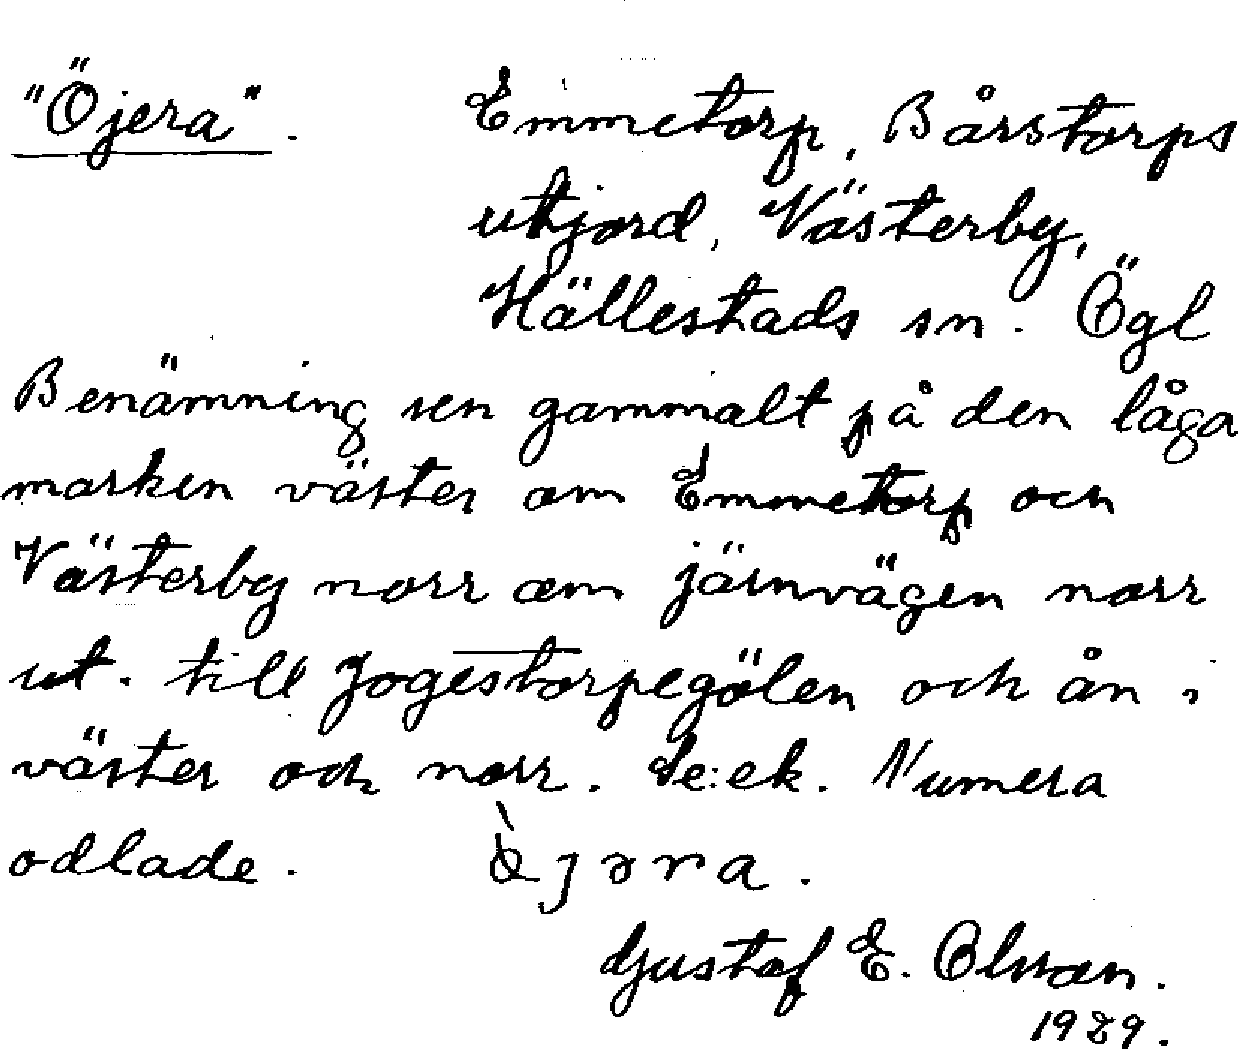 "Öjera". Emmetorp, Bårstorps
utjord, Västerby,
Hällestads sn. Ögl
Benämning sen gammalt på den låga
marken väster om Emmetorp och
Västerby norr om järnvägen norr
ut. till Jogestorpegölen och ån i
väster och norr. Se: ek. Numera
odlade. Öjəra.
Gustaf E. Olsson.
1929.